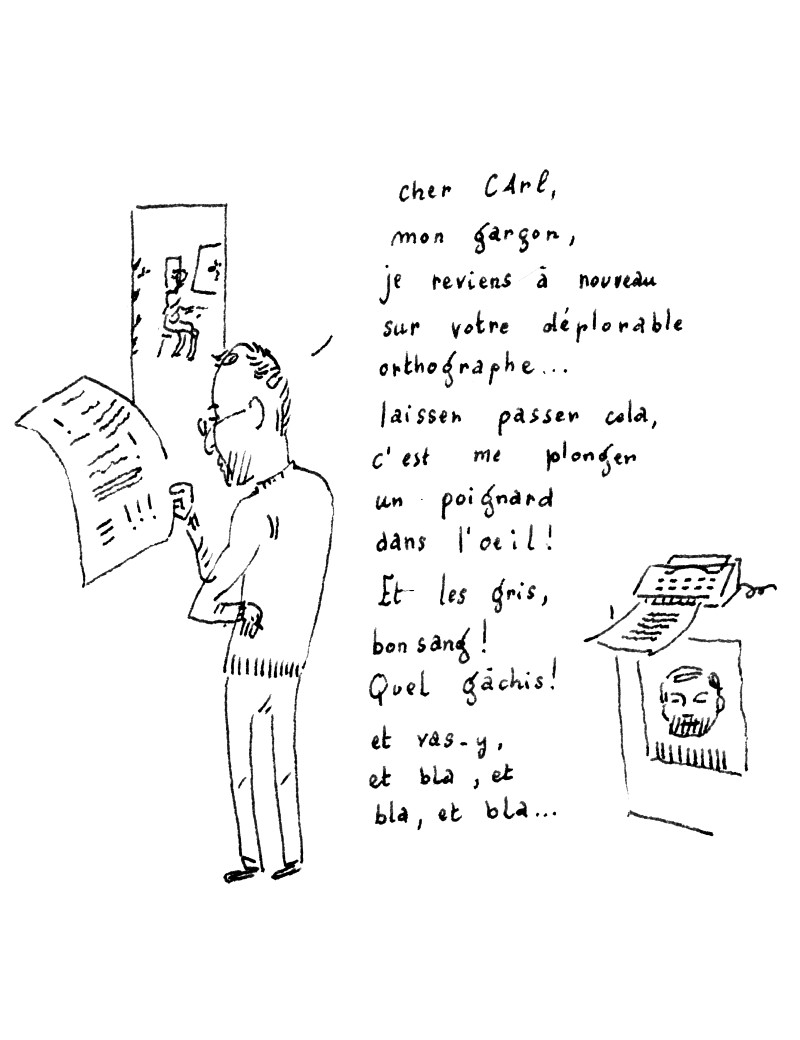 cher CArl,
mon garçon,
je reviens à nouveau
sur votre déplorable
orthographe...
laisser passer cela,
c'est me plonger
un poignard
dans l'oeil!
Et les gris,
bon sang!
Quel gâchis!
et vas-y,
et bla, et
bla, et bla...
!!!